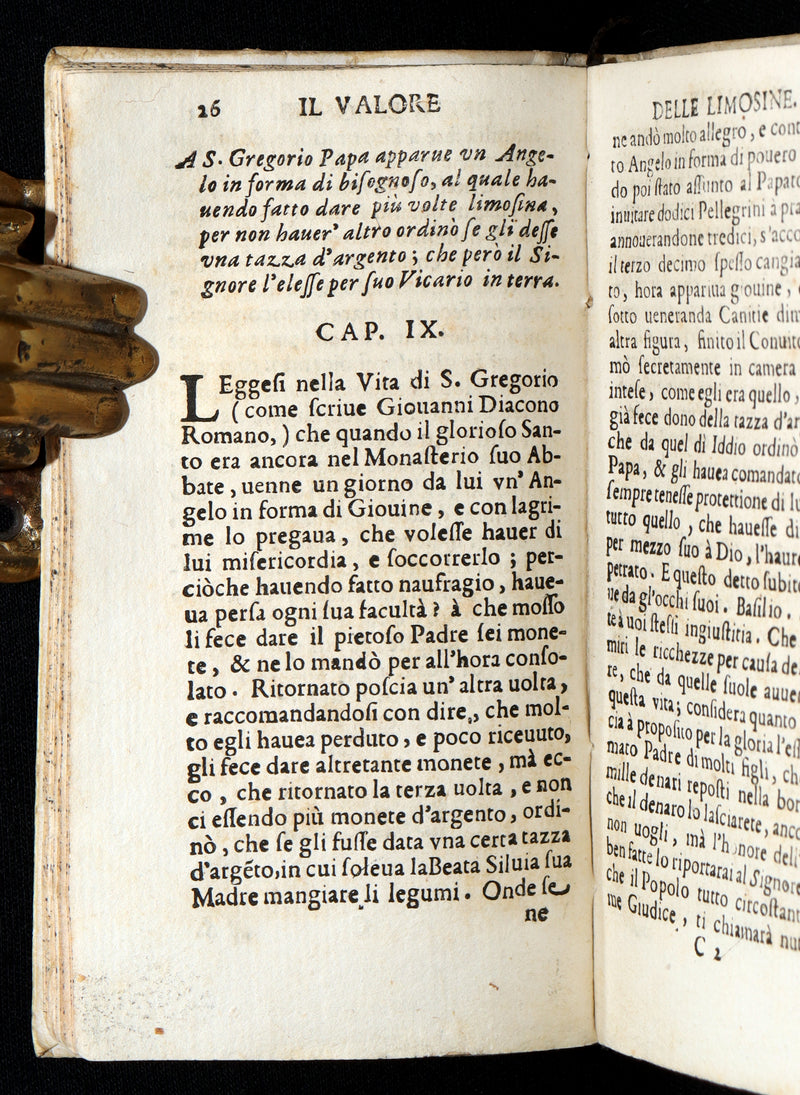 26 IL VALORE
A S. Gregorio Papa apparue vn Ange-
lo in forma di biſognoſo, al quale ha-
uendo fatto dare più volte limoſina,
per non hauer' altro ordinò ſe gli deſſe
vna tazza d'argento; che però il Si-
gnore l'eleſſe per ſuo Vicario in terra.
CAP. IX.
LEggeſi nella Vita di S. Gregorio
(come ſcriue Giouanni Diacono
Romano,) che quando il glorioſo San-
to era ancora nel Monaſterio ſuo Ab-
bate, uenne un giorno da lui vn' An-
gelo in forma di Giouine, e con lagri-
me lo pregaua, che voleſſe hauer di
lui miſericordia, e ſoccorrerlo; per-
ciòche hauendo fatto naufragio, haue-
ua perſa ogni ſua facultà? à che moſſo
li fece dare il pietoſo Padre ſei mone-
te, & ne lo mandò per all'hora conſo-
lato. Ritornato poſcia un' altra uolta,
e raccomandandoſi con dire,, che mol-
to egli hauea perduto, e poco riceuuto,
gli fece dare altretante monete, mà ec-
co, che ritornato la terza uolta, e non
ci eſſendo più monete d'argento, ordi-
nò, che ſe gli fuſſe data vna certa tazza
d'argẽto,in cui ſoleua la Beata Siluia ſua
Madre mangiare li legumi. Onde ſe
ne
DELLE LIMOSINE.
ne andò molto allegro, e cont
to Angelo in forma di pouero
do poi ſtato aſſunto al Papat
inuitare dodici Pellegrini a pra
annouerandone tredici, s'acco
il terzo decimo ſpeſſo cangia
to, hora appariua giouine,
ſotto ueneranda Canitie
altra figura, finito il Conuito
mò ſecretamente in camera
inteſe, come egli era quello,
già fece dono della tazza d'ar
che da quel dì Iddio ordinò
Papa, & gli hauea comandato
ſempre teneſſe protettione di
tutto quello, che haueſſe di
per mezzo ſuo à Dio, l'haur
petrato. E queſto detto ſubito
ue da gl'occhi ſuoi. Baſilio.
te à uoi ſteſſi ingiuſtitia. Che
miri le ricchezze per cauſa de
re, che da quelle ſuole auue
queſta vita; conſidera quanto
cia à propoſito per la gloria l'eſ
mato Padre di molti figli, ch
mille denari repoſti nella bor
che il denaro lo laſciarete, anco
non uogli, mà l'honore deli
ben fatte lo riportarai al Signore
che il Popolo tutto circoſtant
me Giudice, ti chiamarà nut
C 2